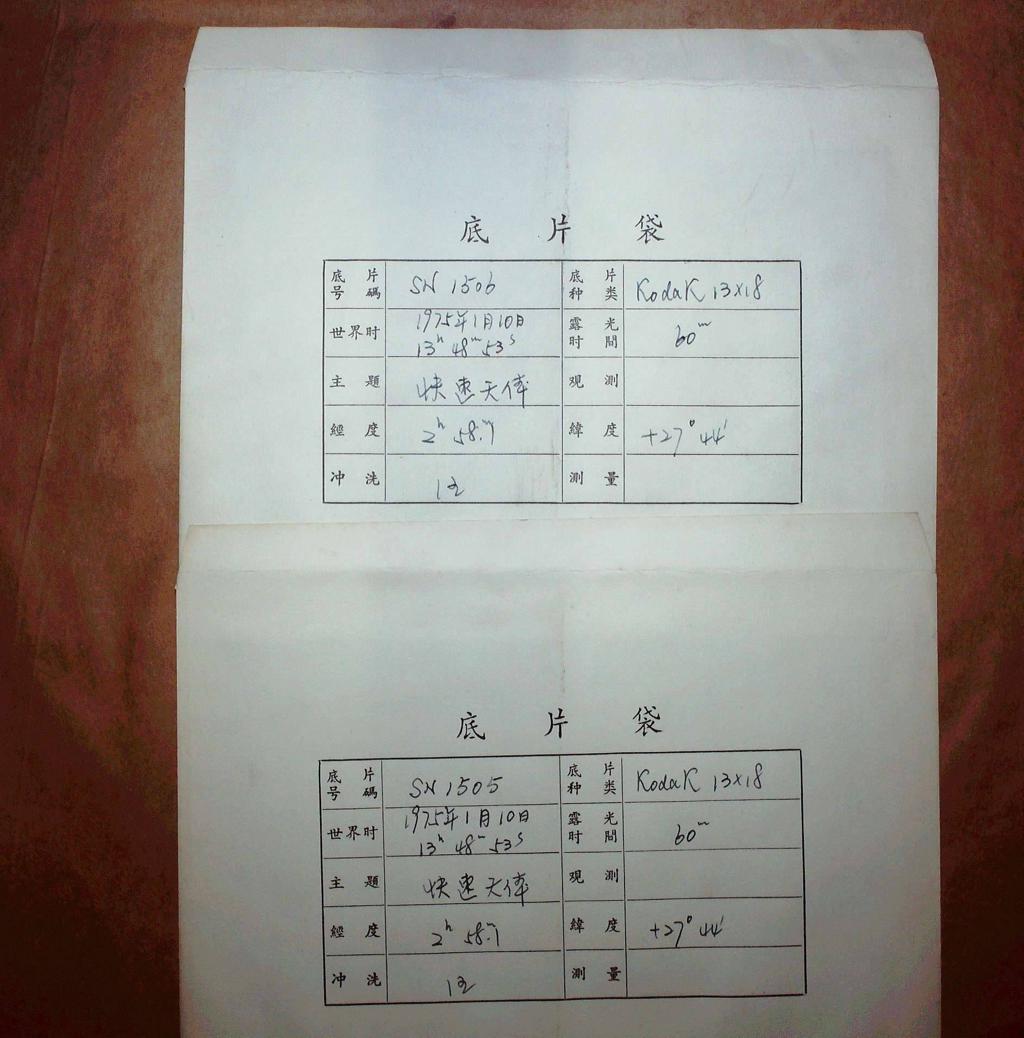 底 片 袋
底 片 号 碼 SN 1506 底 片 种 类 Kodak 13×18
世界时 1975年1月10日 13ʰ 48ᵐ 53ˢ 露 光 时 間 60ᵐ
主 題 快速天体 观 測
經 度 2ʰ 58.ᵐ7 緯 度 +27° 44′
冲 洗 測 量
底 片 袋
底 片 号 碼 SN 1505 底 片 种 类 Kodak 13×18
世界时 1975年1月10日 13ʰ 48ᵐ 53ˢ 露 光 时 間 60ᵐ
主 題 快速天体 观 測
經 度 2ʰ 58.ᵐ7 緯 度 +27° 44′
冲 洗 測 量